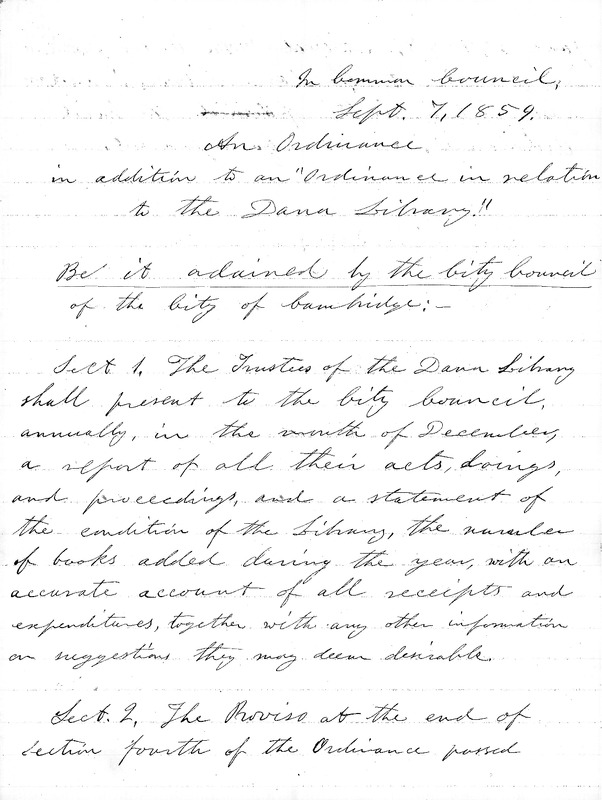 In Common Council,
Sept. 7, 1859.
An Ordinance
in addition to an "Ordinance in relation
to the Dana Library."
Be it ordained by the City Council
of the City of Cambridge:—
Sect 1. The Trustees of the Dana Library
shall present to the City Council,
annually, in the month of December,
a report of all their acts, doings,
and proceedings, and a statement of
the condition of the Library, the number
of books added during the year, with an
accurate account of all receipts and
expenditures, together with any other information
or suggestions they may deem desirable.
Sect. 2. The Proviso at the end of
section fourth of the Ordinance passed